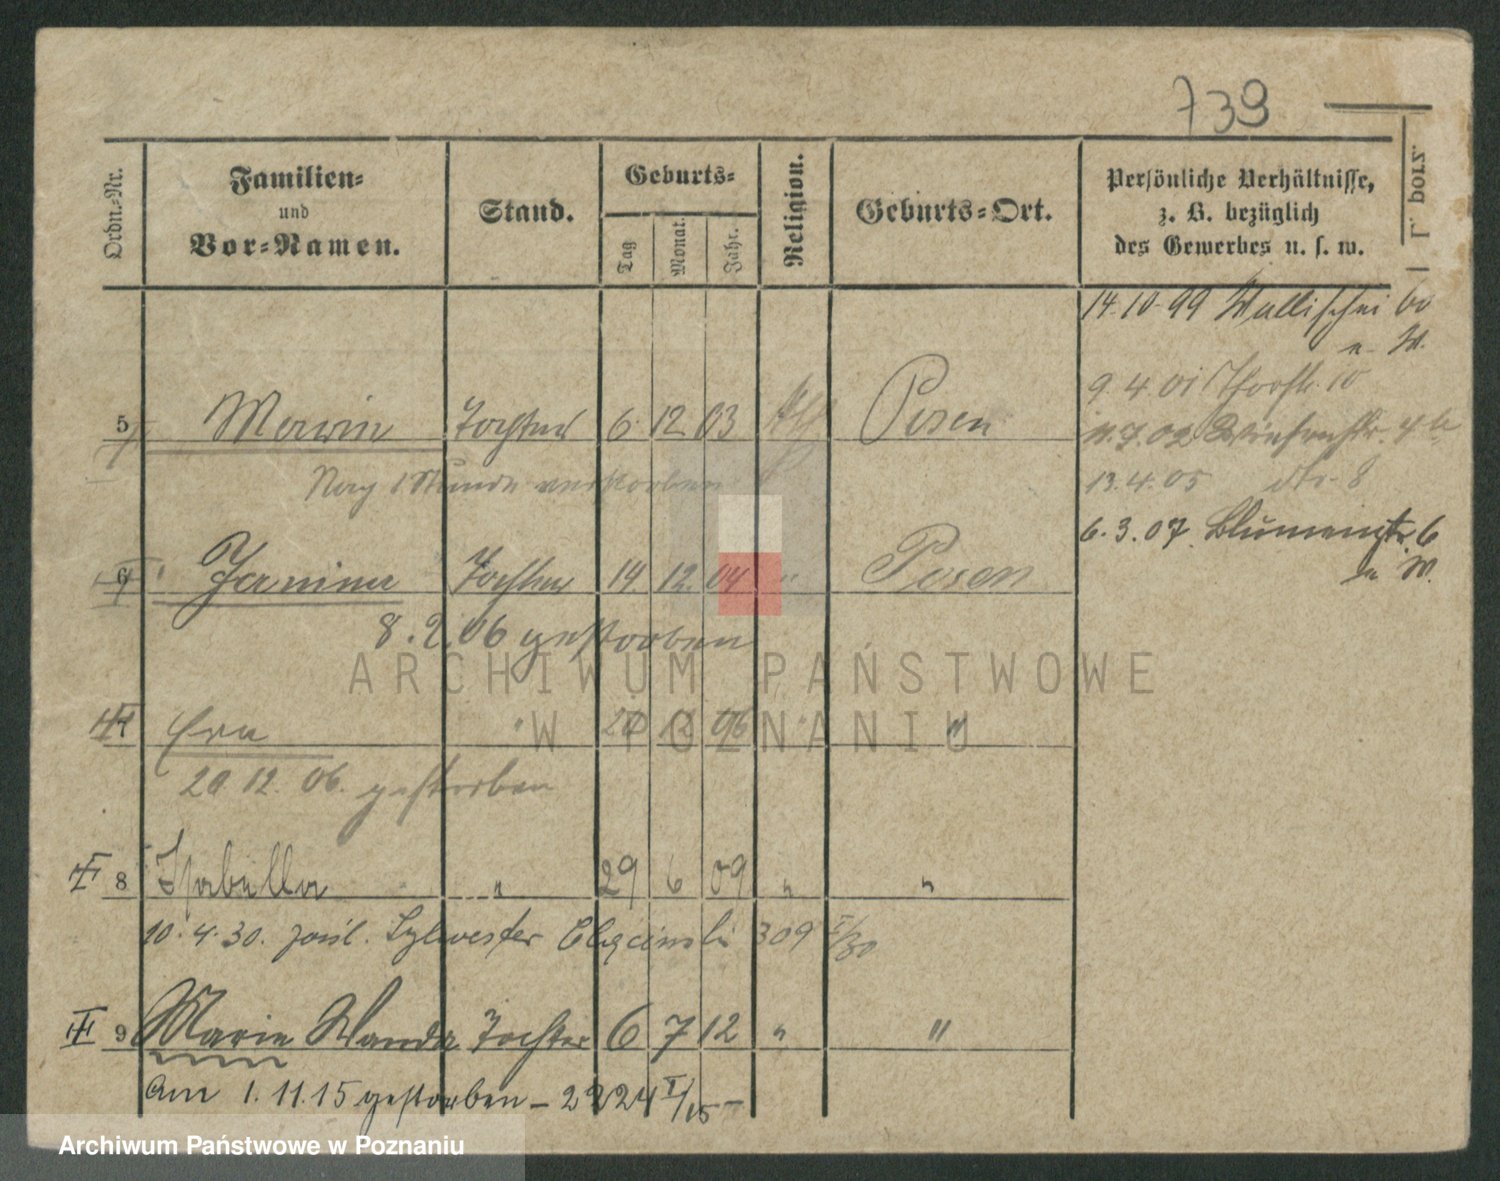 739
Ordn.-Nr.
Familien-
und
Vor-Namen.
Stand.
Geburts-
Tag
Monat.
Jahr.
Religion.
Geburts-Ort.
Persönliche Verhältnisse,
z. B. bezüglich
des Gewerbes u. s. w.
L. porz.
14.10.99 Wallischei
n. W.
9.4.01 Thorstr. 10
5 Marie Tochter 6 12 03 Posen
11.7.02 Wiesenstr. 4
Nach 1 Stunde verstorben
13.4.05 8
6.3.07 Blumenstr. 6
n W.
6 Janina Tochter 14. 12. 04 " Posen
8.2.06 gestorben
7 Era " 12 06 " "
20 12. 06. gestorben
8 Isabella " 29 6 09 " "
10.4.30. Sylwester 309 I/30
II 9 Marie Wanda Tochter 6 7 12 " "
am 1.11.15 gestorben – 2224 I/15 –
ARCHIWUM PAŃSTWOWE
W POZNANIU
Archiwum Państwowe w Poznaniu